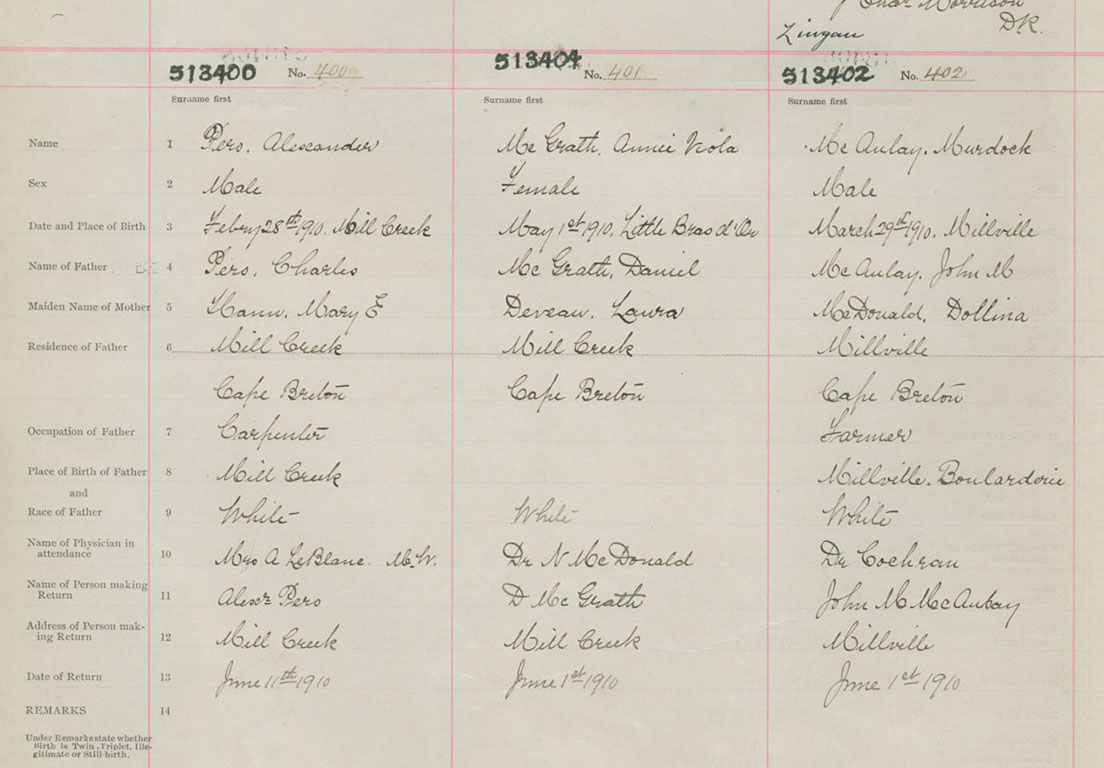 Chas Morrison
Lingan D.R.
513400 No. 400 513401 No. 401 513402 No. 402
Surname first Surname first Surname first
Name 1 Pero, Alexcander Mc Grath, Annie Viola Mc Aulay, Murdock
Sex 2 Male Female Male
Date and Place of Birth 3 Febry 28th 1910. Mill Creek May 1st 1910, Little Bras d'Or March 29th 1910. Millville
Name of Father 4 Pero, Charles Mc Grath, Daniel Mc Aulay, John M
Maiden Name of Mother 5 Hann, Mary E Deveau, Laura McDonald, Dollina
Residence of Father 6 Mill Creek Mill Creek Millville
Cape Breton Cape Breton Cape Breton
Occupation of Father 7 Carpenter Farmer
Place of Birth of Father 8 Mill Creek Millville. Boularderie
and
Race of Father 9 White White White
Name of Physician in attendance 10 Mrs A LeBlanc. M.W. Dr N McDonald Dr Cochran
Name of Person making Return 11 Alexr Pero D Mc Grath John M McAulay
Address of Person mak-ing Return 12 Mill Creek Mill Creek Millville
Date of Return 13 June 11th 1910 June 1st 1910 June 1st 1910
REMARKS 14
Under Remarks state whether
Birth is Twin, Triplet, Ille-
gitimate or Still-birth.